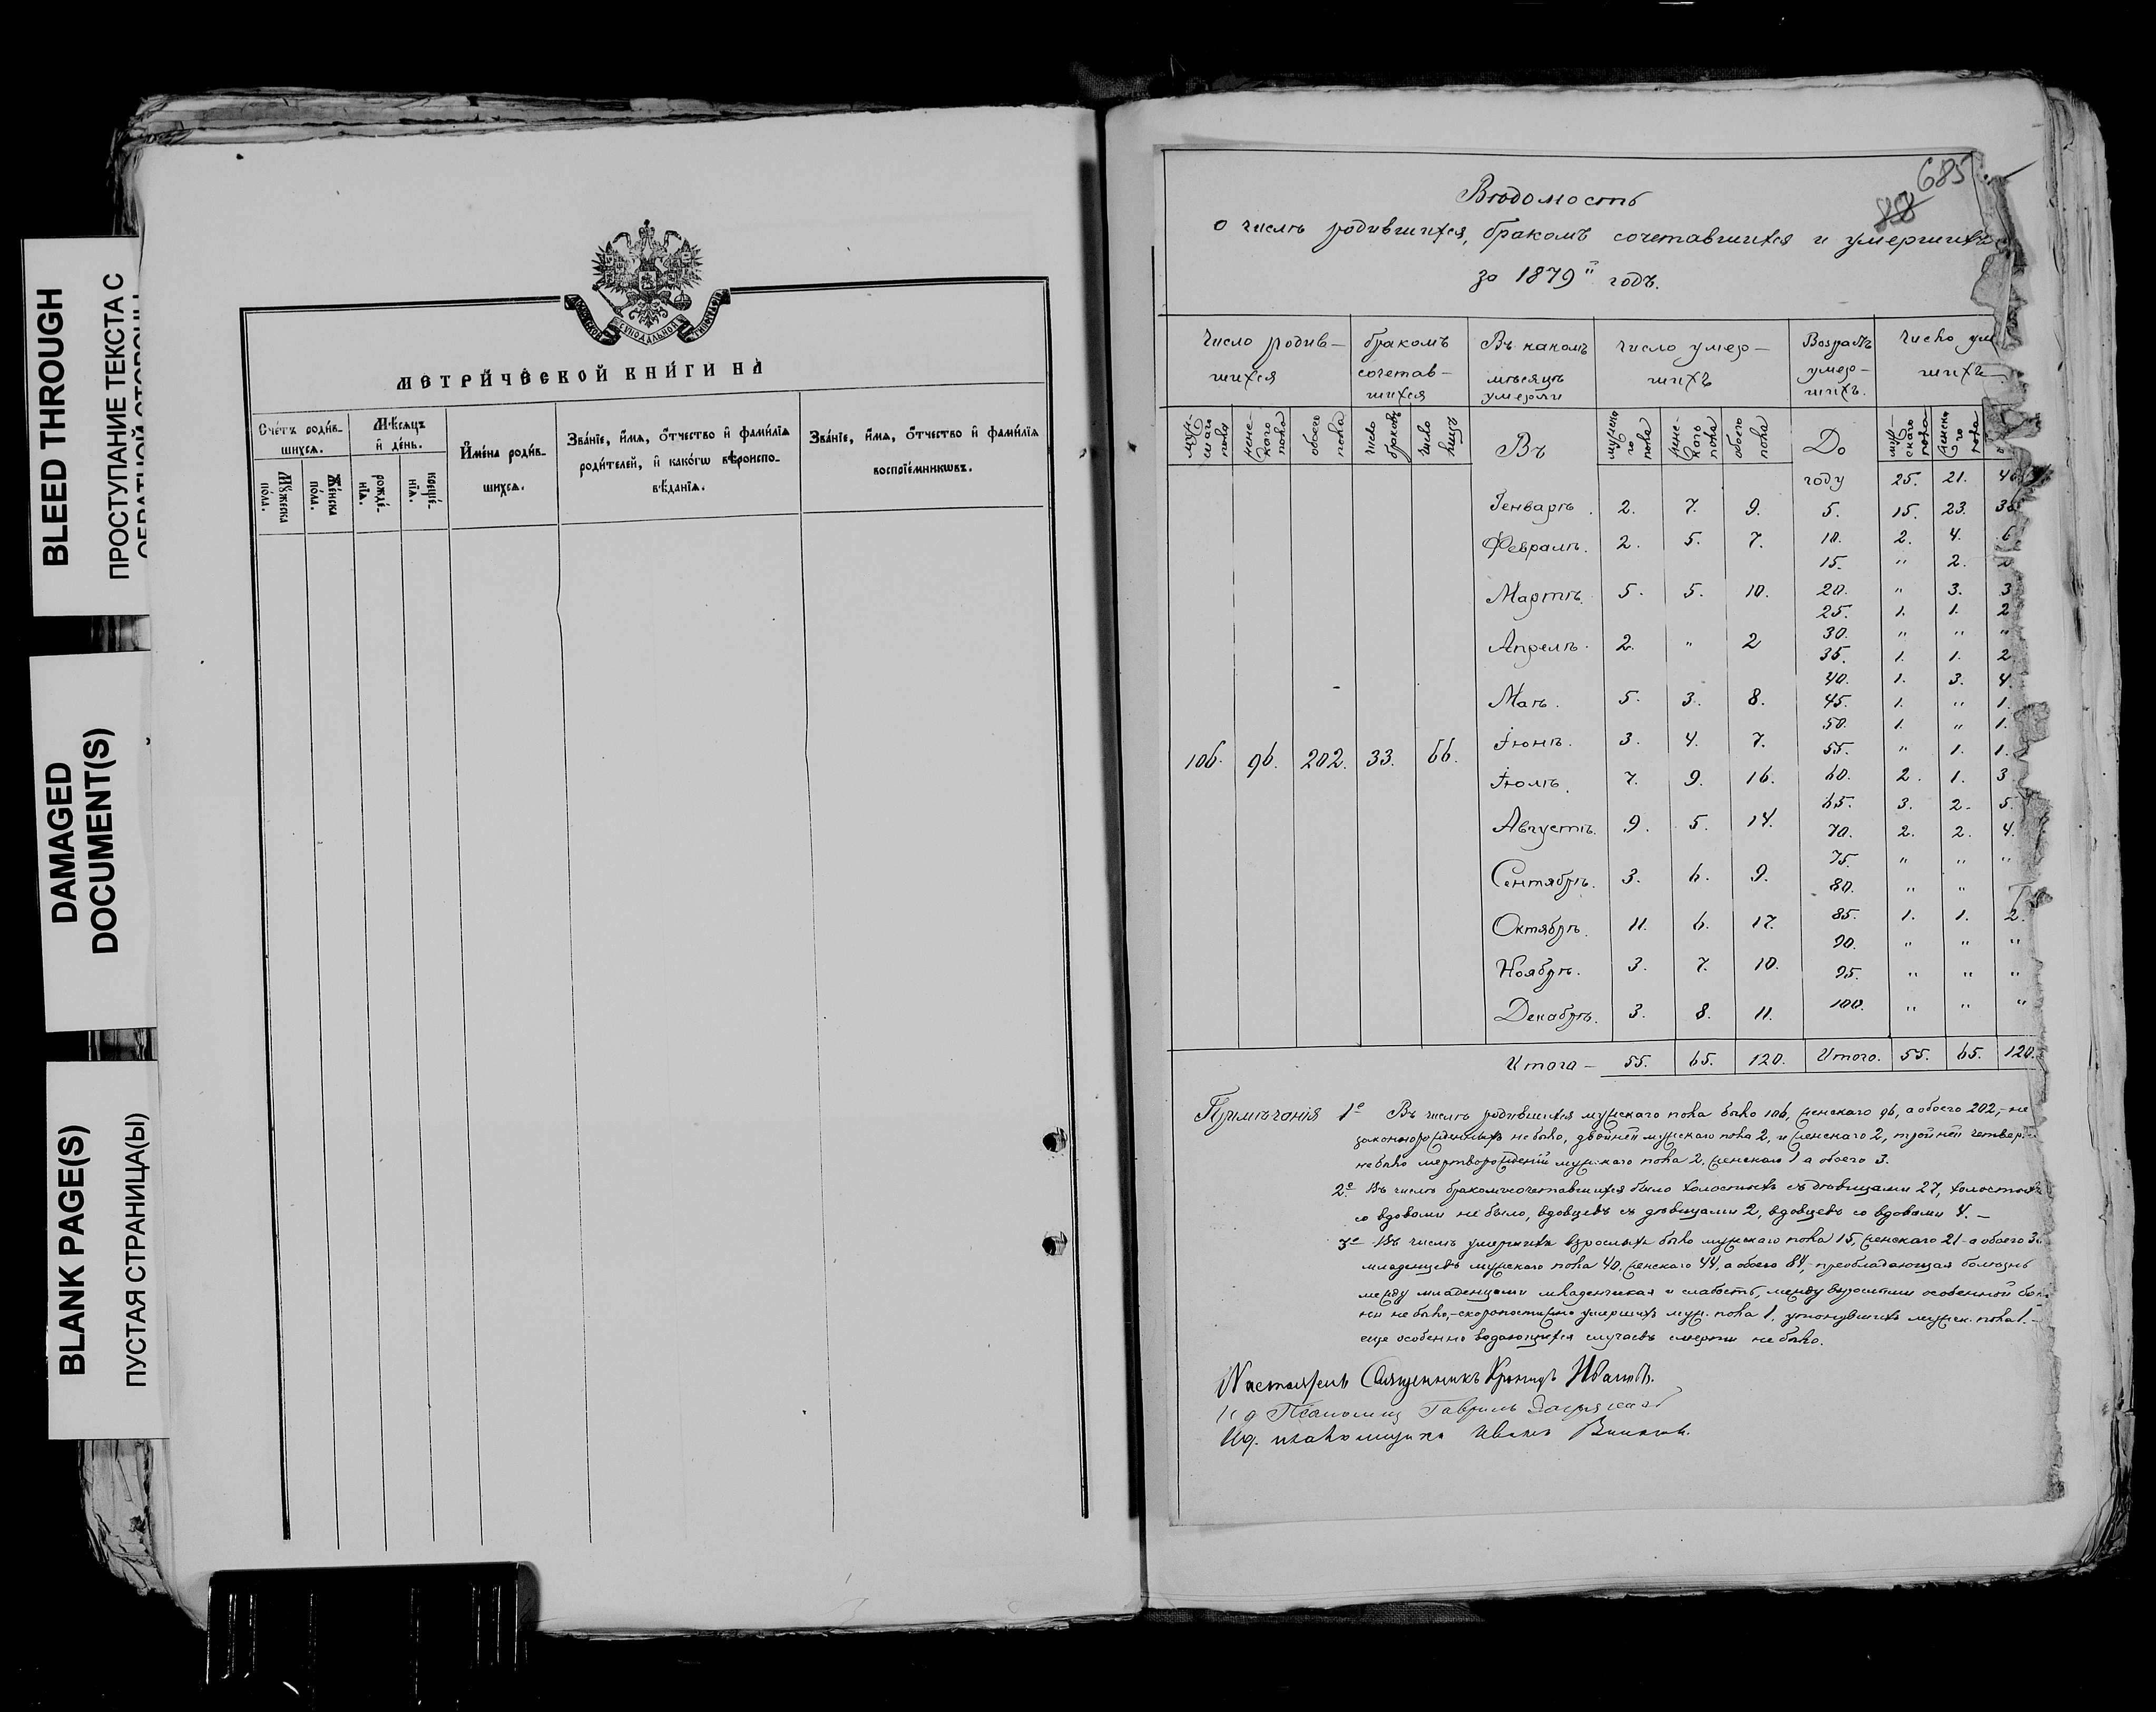 BLEED THROUGH
ПРОСТУПАНИЕ ТЕКСТА С
ОБРАТНОЙ СТОРОНЫ
DAMAGED
DOCUMENT(S)
BLANK PAGE(S)
ПУСТАЯ СТРАНИЦА(Ы)
МОСКОВСКОЙ СѴНОДАЛЬНОЙ ТИПОГРАФІИ
МЕТРИ́ЧЕСКОЙ КНИ́ГИ НА
Сче́тъ роди́в-
шихсѧ.
Мѣ́сѧцъ
и҆ де́нь.
И҆мена̀ роди́в-
шихсѧ.
Зва́нїе, и҆́мѧ, ѻ҆́тчество и҆ фами́лїѧ
роди́телей, и҆ како́гѡ вѣроиспо-
вѣ́данїѧ.
Зва́нїе, и҆́мѧ, ѻ҆́тчество и҆ фами́лїѧ
воспрїе́мникѡвъ.
Мꙋ́жеска
по́ла.
Же́нска
пола.
рожде́-
нїѧ.
креще́-
нїѧ.
685
88
Вѣдомость
о числѣ родившихся, бракомъ сочетавшихся и умершихъ
за 1879й годъ.
Число родив-
шихся
бракомъ
сочетав-
шихся
Въ какомъ
мѣсяцѣ
умерли
число умер-
шихъ
Возрастъ
умер-
шихъ.
Число ум
шихъ
муж-
скаго
пола
женс-
каго
пола
обоего
пола
число
браковъ
число
лицъ
Въ
мужска
го
пола
женс-
каго
пола
обоего
пола
До
муж-
скаго
пола
женска
го
пола
году 25. 21. 46
Генварѣ. 2. 7. 9. 5. 15. 23. 38
Февралѣ. 2. 5. 7. 10. 2. 4. 6
15. " 2. 2
Мартѣ. 5. 5. 10. 20. " 3. 3
25. 1. 1. 2
Апрелѣ. 2. " 2 30. " " "
35. 1. 1. 2
40. 1. 3. 4.
Маѣ. 5. 3. 8. 45. 1. " 1.
50. 1. " 1.
Іюнѣ. 3. 4. 7. 55. " 1. 1.
106. 96. 202. 33. 66.
Іюлѣ. 7. 9. 16. 60. 2. 1. 3
65. 3. 2. 5.
Августѣ. 9. 5. 14. 70. 2. 2. 4.
75. " " "
Сентябрѣ. 3. 6. 9. 80. " "
Октябрѣ. 11. 6. 17. 85. 1. 1. 2.
90. " " "
Ноябрѣ. 3. 7. 10. 95. " " "
Декабрѣ. 3. 8. 11. 100. " " "
Итого – 55. 65. 120. Итого. 55. 65. 120.
Примѣчанія 1е Въ числѣ родившихся мужскаго пола было 106, женскаго 96, а обоего 202,- не
законнорожденныхъ не было, двойней мужскаго пола 2, и женскаго 2, тройней четвер
не было мертворожденій мужскаго пола 2, женскаго 1 а обоего 3.
2е. Въ числѣ бракомъ сочетавшихся было холостыхъ съ дѣвицами 27, холостыхъ
со вдовами не было, вдовцевъ съ дѣвицами 2, вдовцевъ со вдовами 4. –
3е Въ числѣ умершихъ взрослыхъ было мужскаго пола 15, женскаго 21 - а обоего 36
младенцевъ мужскаго пола 40, женскаго 44, а обоего 84,- преобладающая болѣзнь
между младенцами младенческая и слабость, между взрослыми особенной бол
ни не было,- скоропостижно умершихъ муж. пола 1, утонувшихъ мужск. пола 1. –
еще особенно выдающихся случаевъ смерти не было.
Настоятель Священникъ Ивановъ.
И д Псаломщ Гавриилъ
Ид. псаломщика Иванъ